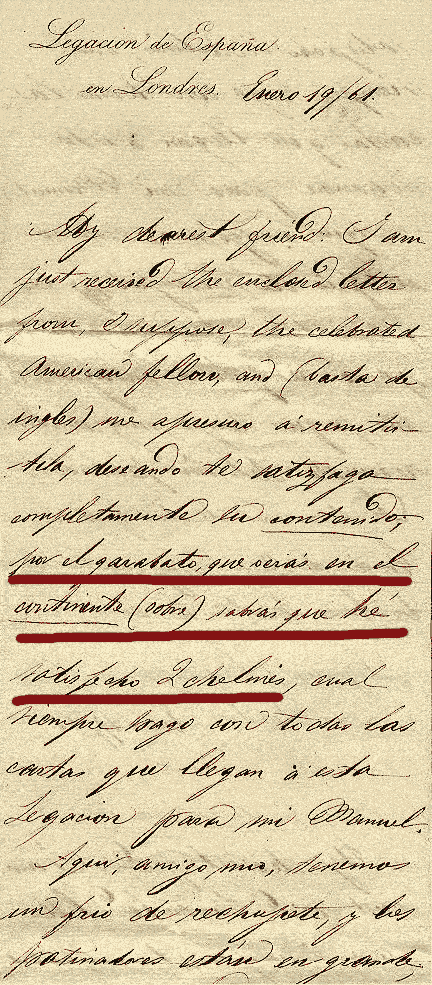 Legacion de España
en Londres. Enero 19/61.
My dearest friend: I am
just received the enclosed letter
from, I suppose, the celebrated
American fellow, and (basta de
ingles) me apresuro á remitir
tela, deseando te satisfaga
completamente su contenido;
por el garabato, que verás en el
continente (sobre) sabrás que hé
satisfecho 2 chelines, cual
siempre hago con todas las
cartas que llegan á esta
Legacion para mi Manuel.
Aqui, amigo mio, tenemos
un frio de rechupete, y los
patinadores están en grande,